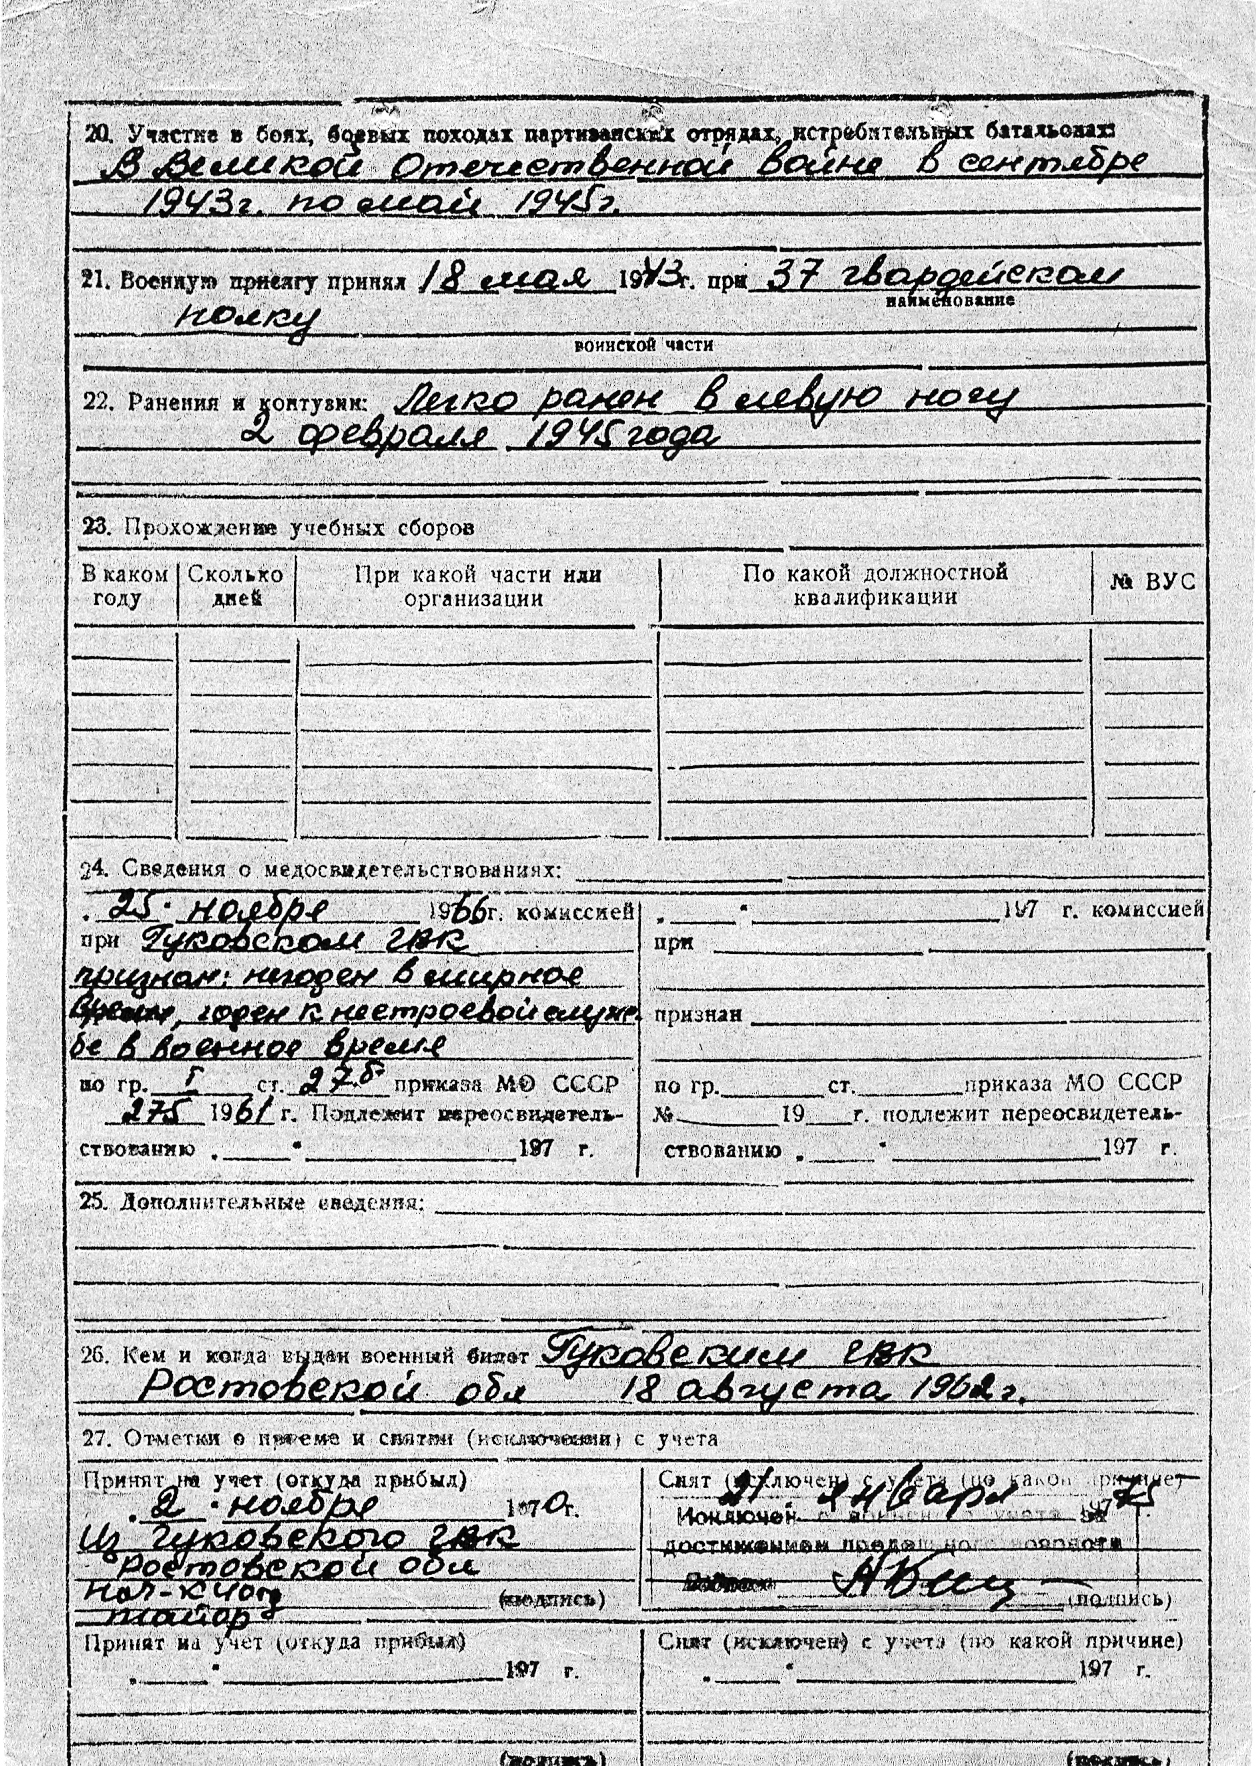 20. Участие в боях, боевых походах партизанских отрядах, истребительных батальонах:
В Великой Отечественной войне в сентябре
1943г. по май 1945г.
21. Военную присягу принял 18 мая 1943г. при 37 гвардейском
наименование
полку
воинской части
22. Ранения и контузии: Легко ранен в левую ногу
2 февраля 1945 года
23. Прохождение учебных сборов
В каком году | Сколько дней | При какой части или организации | По какой должностной квалификации | № ВУС
24. Сведения о медосвидетельствованиях:
„25" ноября 1966г. комиссией
при Гуковском ГВК
признан: негоден в мирное
время, годен к нестроевой служ
бе в военное время
по гр. I ст. 27.б приказа МО СССР
275 1961 г. Подлежит переосвидетель-
ствованию „ " 197 г.
„ " 197 г. комиссией
при
признан
по гр. ст. приказа МО СССР
№ 19 г. подлежит переосвидетель-
ствованию „ " 197 г.
25. Дополнительные сведения:
26. Кем и когда выдан военный билет Гуковским ГВК
Ростовской обл 18 августа 1962г.
27. Отметки о приеме и снятии (исключении) с учета
Принят на учет (откуда прибыл)
„2" ноября 1970г.
Из Гуковского ГВК
Ростовской обл
Нач-к 4 отд
майор
(подпись)
Снят (исключен) с учета (по какой причине)
21 января 1975
Исключен с воинского учета за
достижением предельного возраста
(подпись)
Принят на учет (откуда прибыл)
„ " 197 г.
(подпись)
Снят (исключен) с учета (по какой причине)
„ " 197 г.
(подпись)